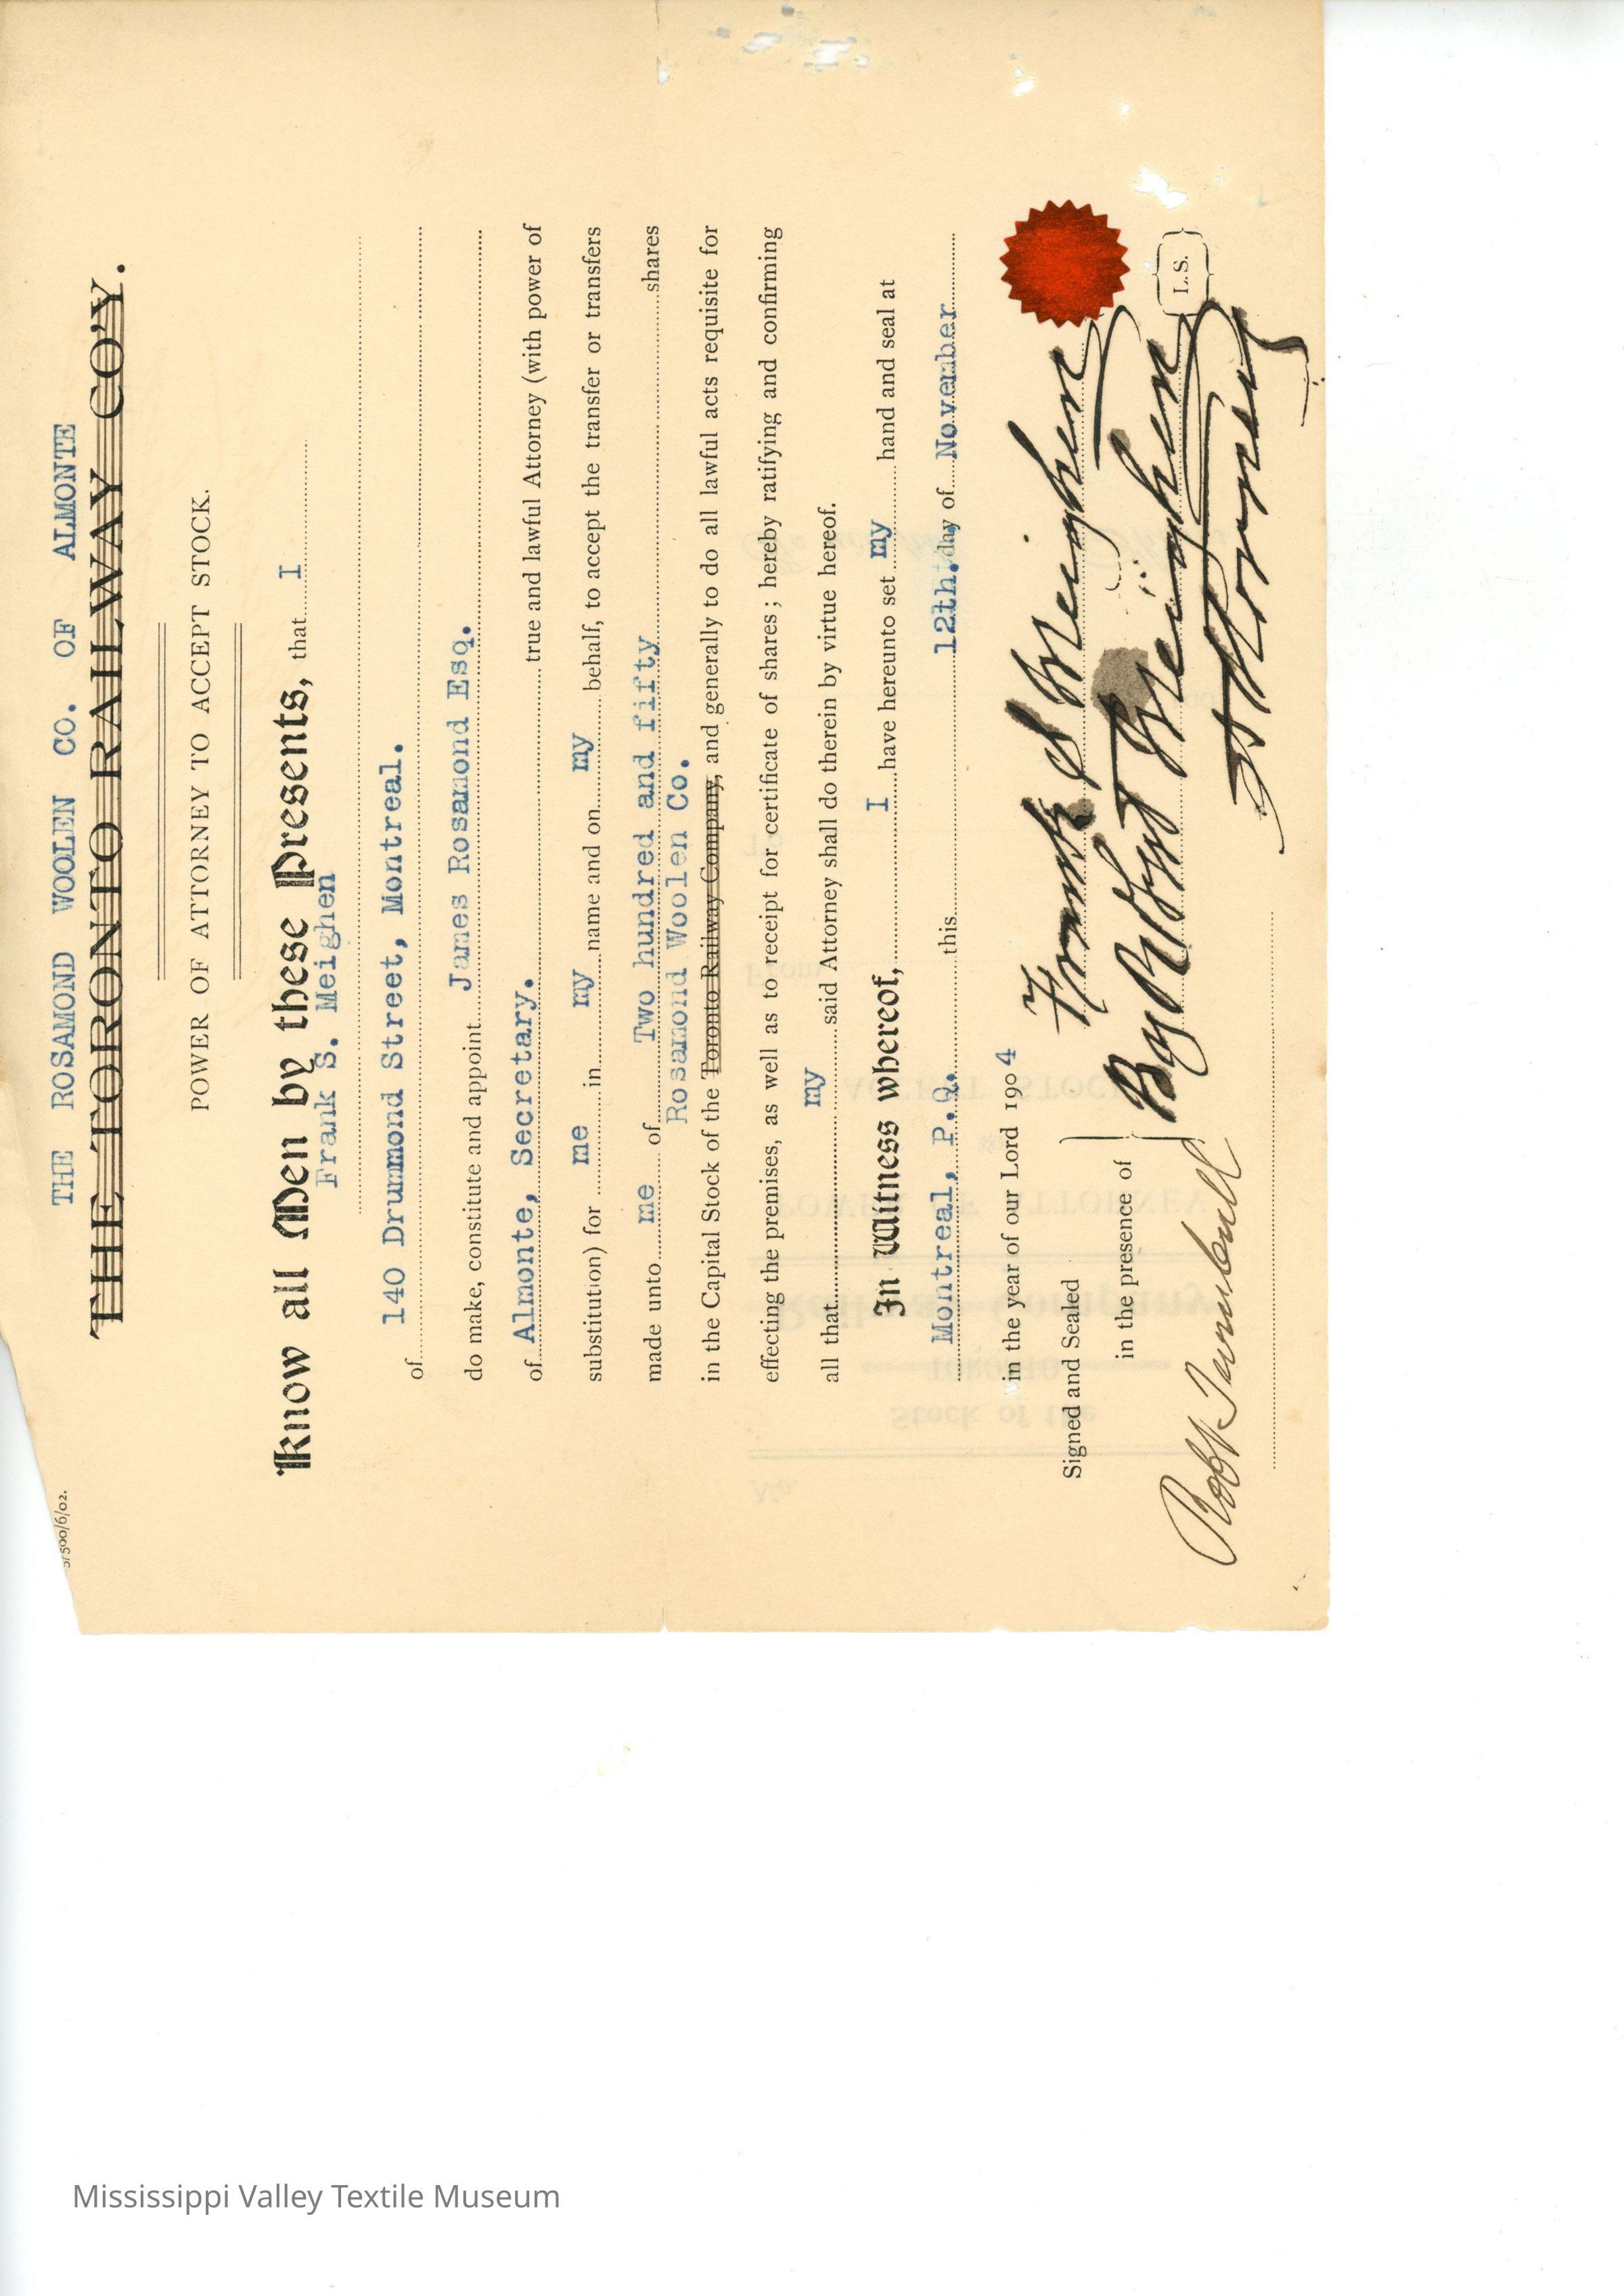 5/500/6/02.
THE ROSAMOND WOOLEN CO. OF ALMONTE
THE TORONTO RAILWAY CO'Y.
POWER OF ATTORNEY TO ACCEPT STOCK.
Know all Men by these Presents, that I
Frank S. Meighen
of 140 Drummond Street, Montreal.
do make, constitute and appoint James Rosamond Esq.
of Almonte, Secretary. true and lawful Attorney (with power of
substitution) for me in my name and on my behalf, to accept the transfer or transfers
made unto me of Two hundred and fifty shares
Rosamond Woolen Co.
in the Capital Stock of the Toronto Railway Company, and generally to do all lawful acts requisite for
effecting the premises, as well as to receipt for certificate of shares; hereby ratifying and confirming
all that my said Attorney shall do therein by virtue hereof.
In Witness whereof, I have hereunto set my hand and seal at
Montreal, P.Q. this 12th. day of November
in the year of our Lord 1904
Signed and Sealed
in the presence of
Frank S Meighen
By Robt Meighen
Attorney
L.S.
Robt Turnbull
Mississippi Valley Textile Museum